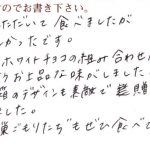 のでお書き下さい。
ただいと食べましたが
かったです。
ホワイトチョコの組み合わせに
お上品な味がしました
箱のデザインも素敵で
した。
巣ごもりたちもぜひ食べて